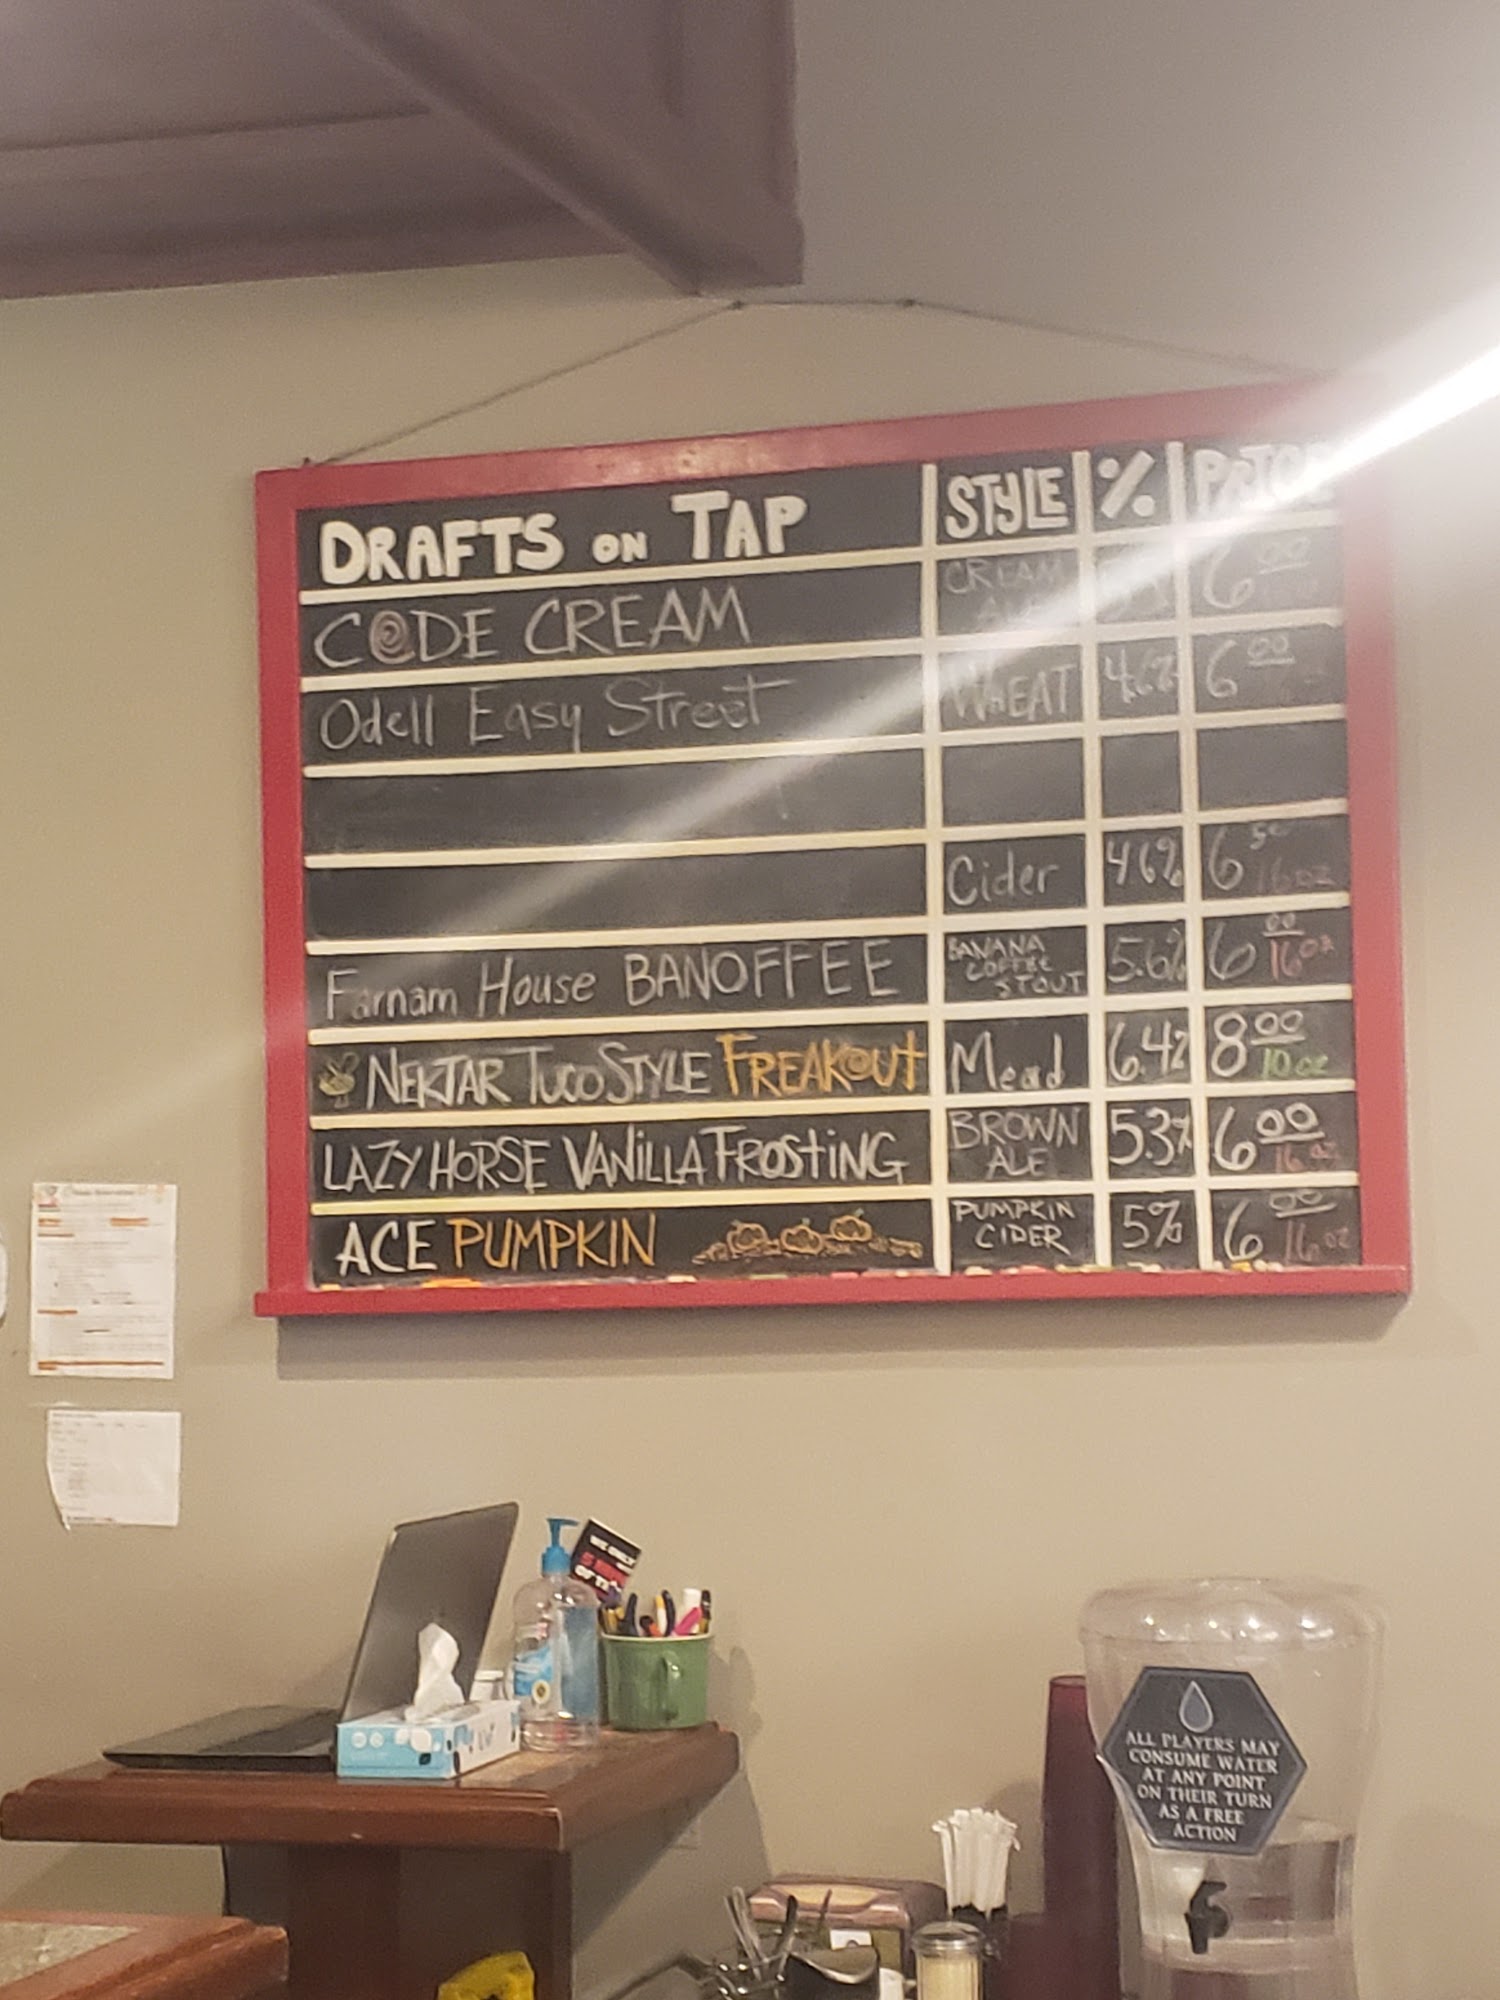 DRAFTS ON TAP STYLE % PRICE
CODE CREAM CREAM ALE 6.00
Odell Easy Street WHEAT 4.6% 6.00
Cider 4.6% 6.50 16oz
Farnam House BANOFFEE BANANA COFFEE STOUT 5.6% 6.00 16oz
NEKTAR TUCO STYLE FREAKOUT Mead 6.4% 8.00 10oz
LAZY HORSE VANILLA FROSTING BROWN ALE 5.3% 6.00 16oz
ACE PUMPKIN PUMPKIN CIDER 5% 6.00 16oz
ALL PLAYERS MAY
CONSUME WATER
AT ANY POINT
ON THEIR TURN
AS A FREE
ACTION